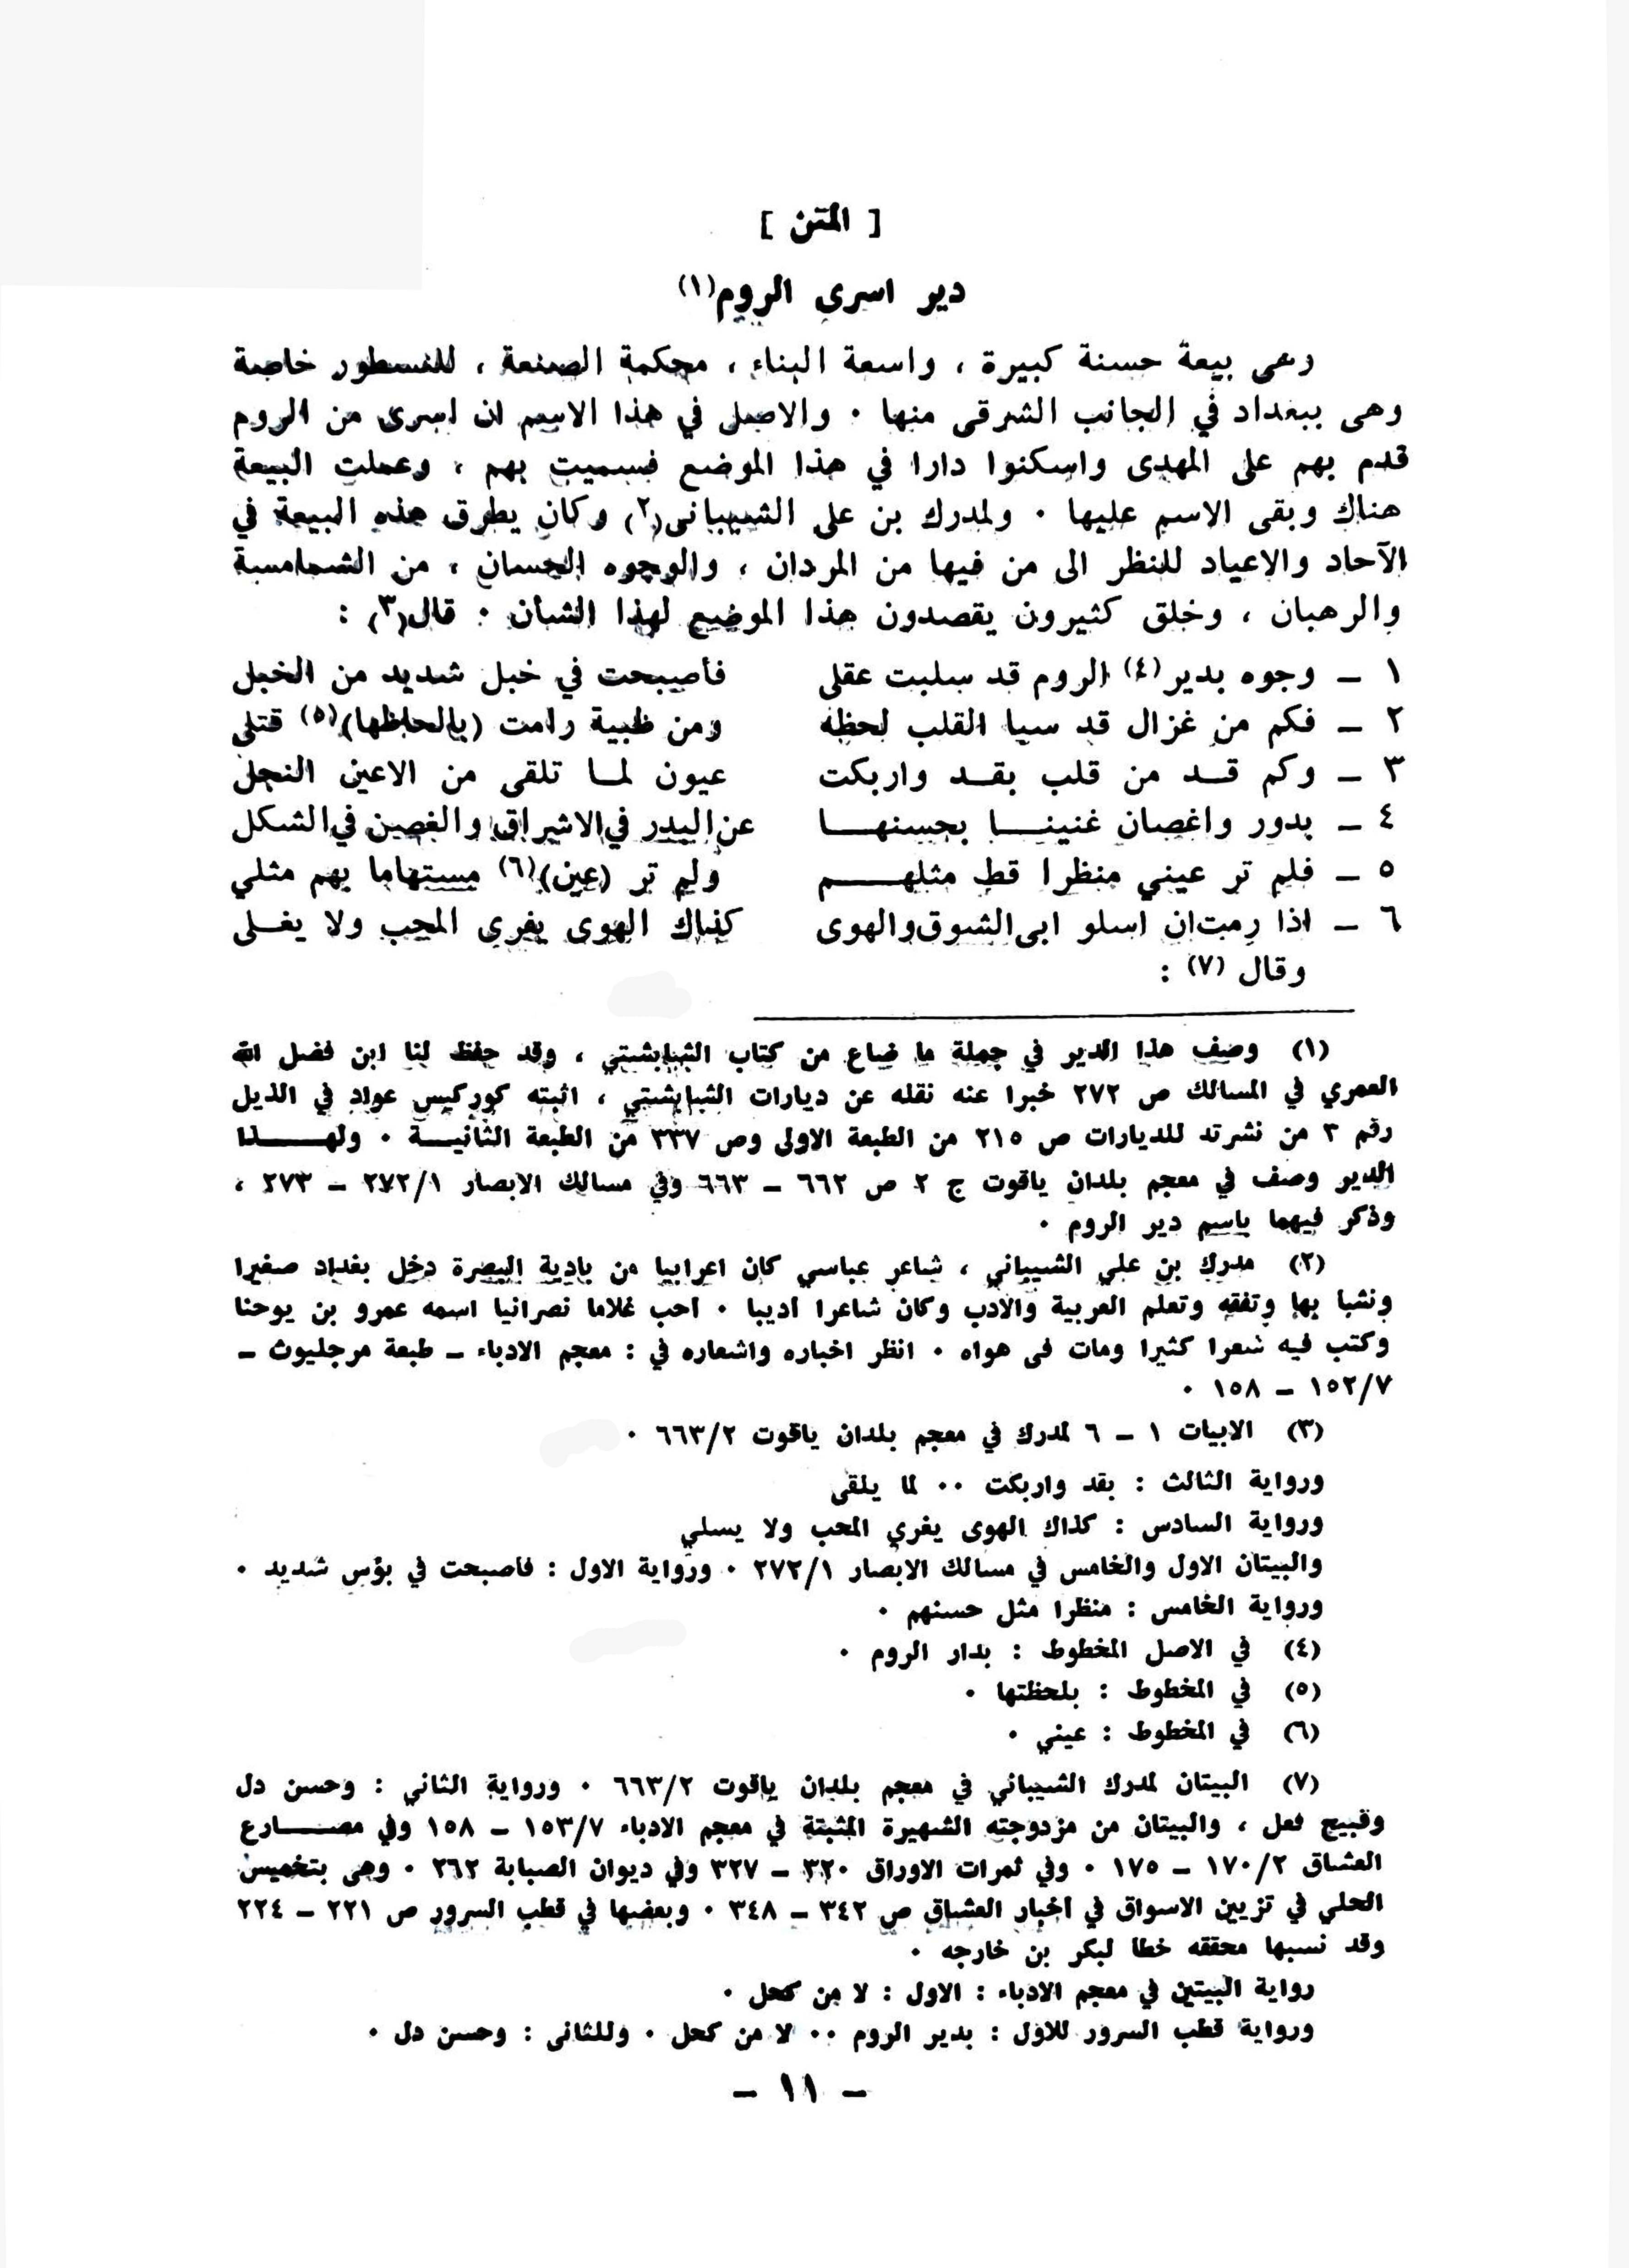 [ المتن ]
دير اسرى الروم(١)
وهى بيعة حسنة كبيرة ، واسعة البناء ، محكمة الصنعة ، للنسطور خاصة
وهى ببغداد في الجانب الشرقى منها . والاصل في هذا الاسم ان اسرى من الروم
قدم بهم على المهدى واسكنوا دارا في هذا الموضع فسميت بهم ، وعملت البيعة
هناك وبقى الاسم عليها . ولمدرك بن على الشيبانى(٢) وكان يطرق هذه البيعة في
الآحاد والاعياد للنظر الى من فيها من المردان ، والوجوه الحسان ، من الشمامسة
والرهبان ، وخلق كثيرون يقصدون هذا الموضع لهذا الشأن . قال(٣) :
١ – وجوه بدير(٤) الروم قد سلبت عقلى فأصبحت في خبل شديد من الخبل
٢ – فكم من غزال قد سبا القلب لحظه ومن ظبية رامت (بالحاظها)(٥) قتلى
٣ – وكم قد من قلب بقد واربكت عيون لما تلقى من الاعين النجل
٤ – بدور واغصان غنينا بحسنها عن البدر في الاشراق والغصن في الشكل
٥ – فلم تر عيني منظرا قط مثلهم ولم تر (عين)(٦) مستهاما بهم مثلي
٦ – اذا رمت ان اسلو ابى الشوق والهوى كذاك الهوى يغرى المحب ولا يغلى
وقال (٧) :
(١) وصف هذا الدير في جملة ما ضاع من كتاب الشابشتي ، وقد حفظ لنا ابن فضل الله
العمري في المسالك ص ٢٧٢ خبرا عنه نقله عن ديارات الشابشتي ، اثبته كوركيس عواد في الذيل
رقم ٣ من نشرته للديارات ص ٢١٥ من الطبعة الاولى وص ٣٣٧ من الطبعة الثانية . ولهذا
الدير وصف في معجم بلدان ياقوت ج ٢ ص ٦٦٢ – ٦٦٣ وفي مسالك الابصار ٢٧٢/١ – ٢٧٣ ،
وذكر فيهما باسم دير الروم .
(٢) مدرك بن علي الشيباني ، شاعر عباسي كان اعرابيا من بادية البصرة دخل بغداد صغيرا
ونشأ بها وتفقه وتعلم العربية والادب وكان شاعرا أديبا . احب غلاما نصرانيا اسمه عمرو بن يوحنا
وكتب فيه شعرا كثيرا ومات فى هواه . انظر اخباره واشعاره في : معجم الادباء – طبعة مرجليوث –
١٥٢/٧ – ١٥٨ .
(٣) الابيات ١ – ٦ لمدرك في معجم بلدان ياقوت ٦٦٣/٢ .
ورواية الثالث : بقد واربكت .. لما يلقى
ورواية السادس : كذاك الهوى يغري المحب ولا يسلي
والبيتان الاول والخامس في مسالك الابصار ٢٧٢/١ . ورواية الاول : فاصبحت في بؤس شديد .
ورواية الخامس : منظرا مثل حسنهم .
(٤) في الاصل المخطوط : بدار الروم .
(٥) في المخطوط : بلحظتها .
(٦) في المخطوط : عيني .
(٧) البيتان لمدرك الشيباني في معجم بلدان ياقوت ٦٦٣/٢ . ورواية الثاني : وحسن دل
وقبيح فعل ، والبيتان من مزدوجته الشهيرة المثبتة في معجم الادباء ١٥٣/٧ – ١٥٨ وفي مصارع
العشاق ١٧٠/٢ – ١٧٥ . وفي ثمرات الاوراق ٣٢٠ – ٣٢٧ وفي ديوان الصبابة ٢٦٢ . وهى بتخميس
الحلي في تزيين الاسواق في أخبار العشاق ص ٣٤٢ – ٣٤٨ . وبعضها في قطب السرور ص ٢٢١ – ٢٢٤
وقد نسبها محققه خطا لبكر بن خارجه .
رواية البيتين في معجم الادباء : الاول : لا من كحل .
ورواية قطب السرور للاول : بدير الروم .. لا من كحل . وللثانى : وحسن دل .
– ١١ –